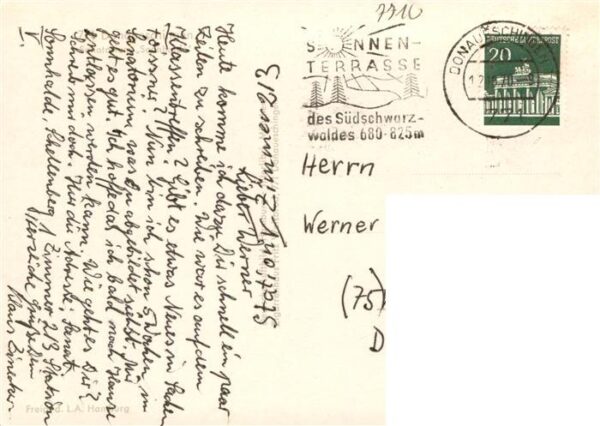 7710
SONNEN-
TERRASSE
des Südschwarz-
waldes 680-825m
DONAUESCHINGEN
DEUTSCHE BUNDESPOST
20
Herrn
Werner
(75)
D
Lieber Werner
Heute komme ich dazu Dir schnell ein paar
Zeilen zu schreiben. Wie war es auf dem
Klassentreffen? Gibt es etwas Neues in Sachen
Nun bin ich schon 5 Wochen im
Sanatorium, was Du abgebildet siehst. Mir
geht es gut. Ich hoffe daß ich bald nach Hause
entlassen werden kann. Wie geht es Dir?
Schreib mir doch. Hier die Adresse: Sanat.
Sonnhalde, 1 Zimmer 213 Station
V. Herzliche Grüße Dein
Klaus
Freig. d. L.A. Hamburg